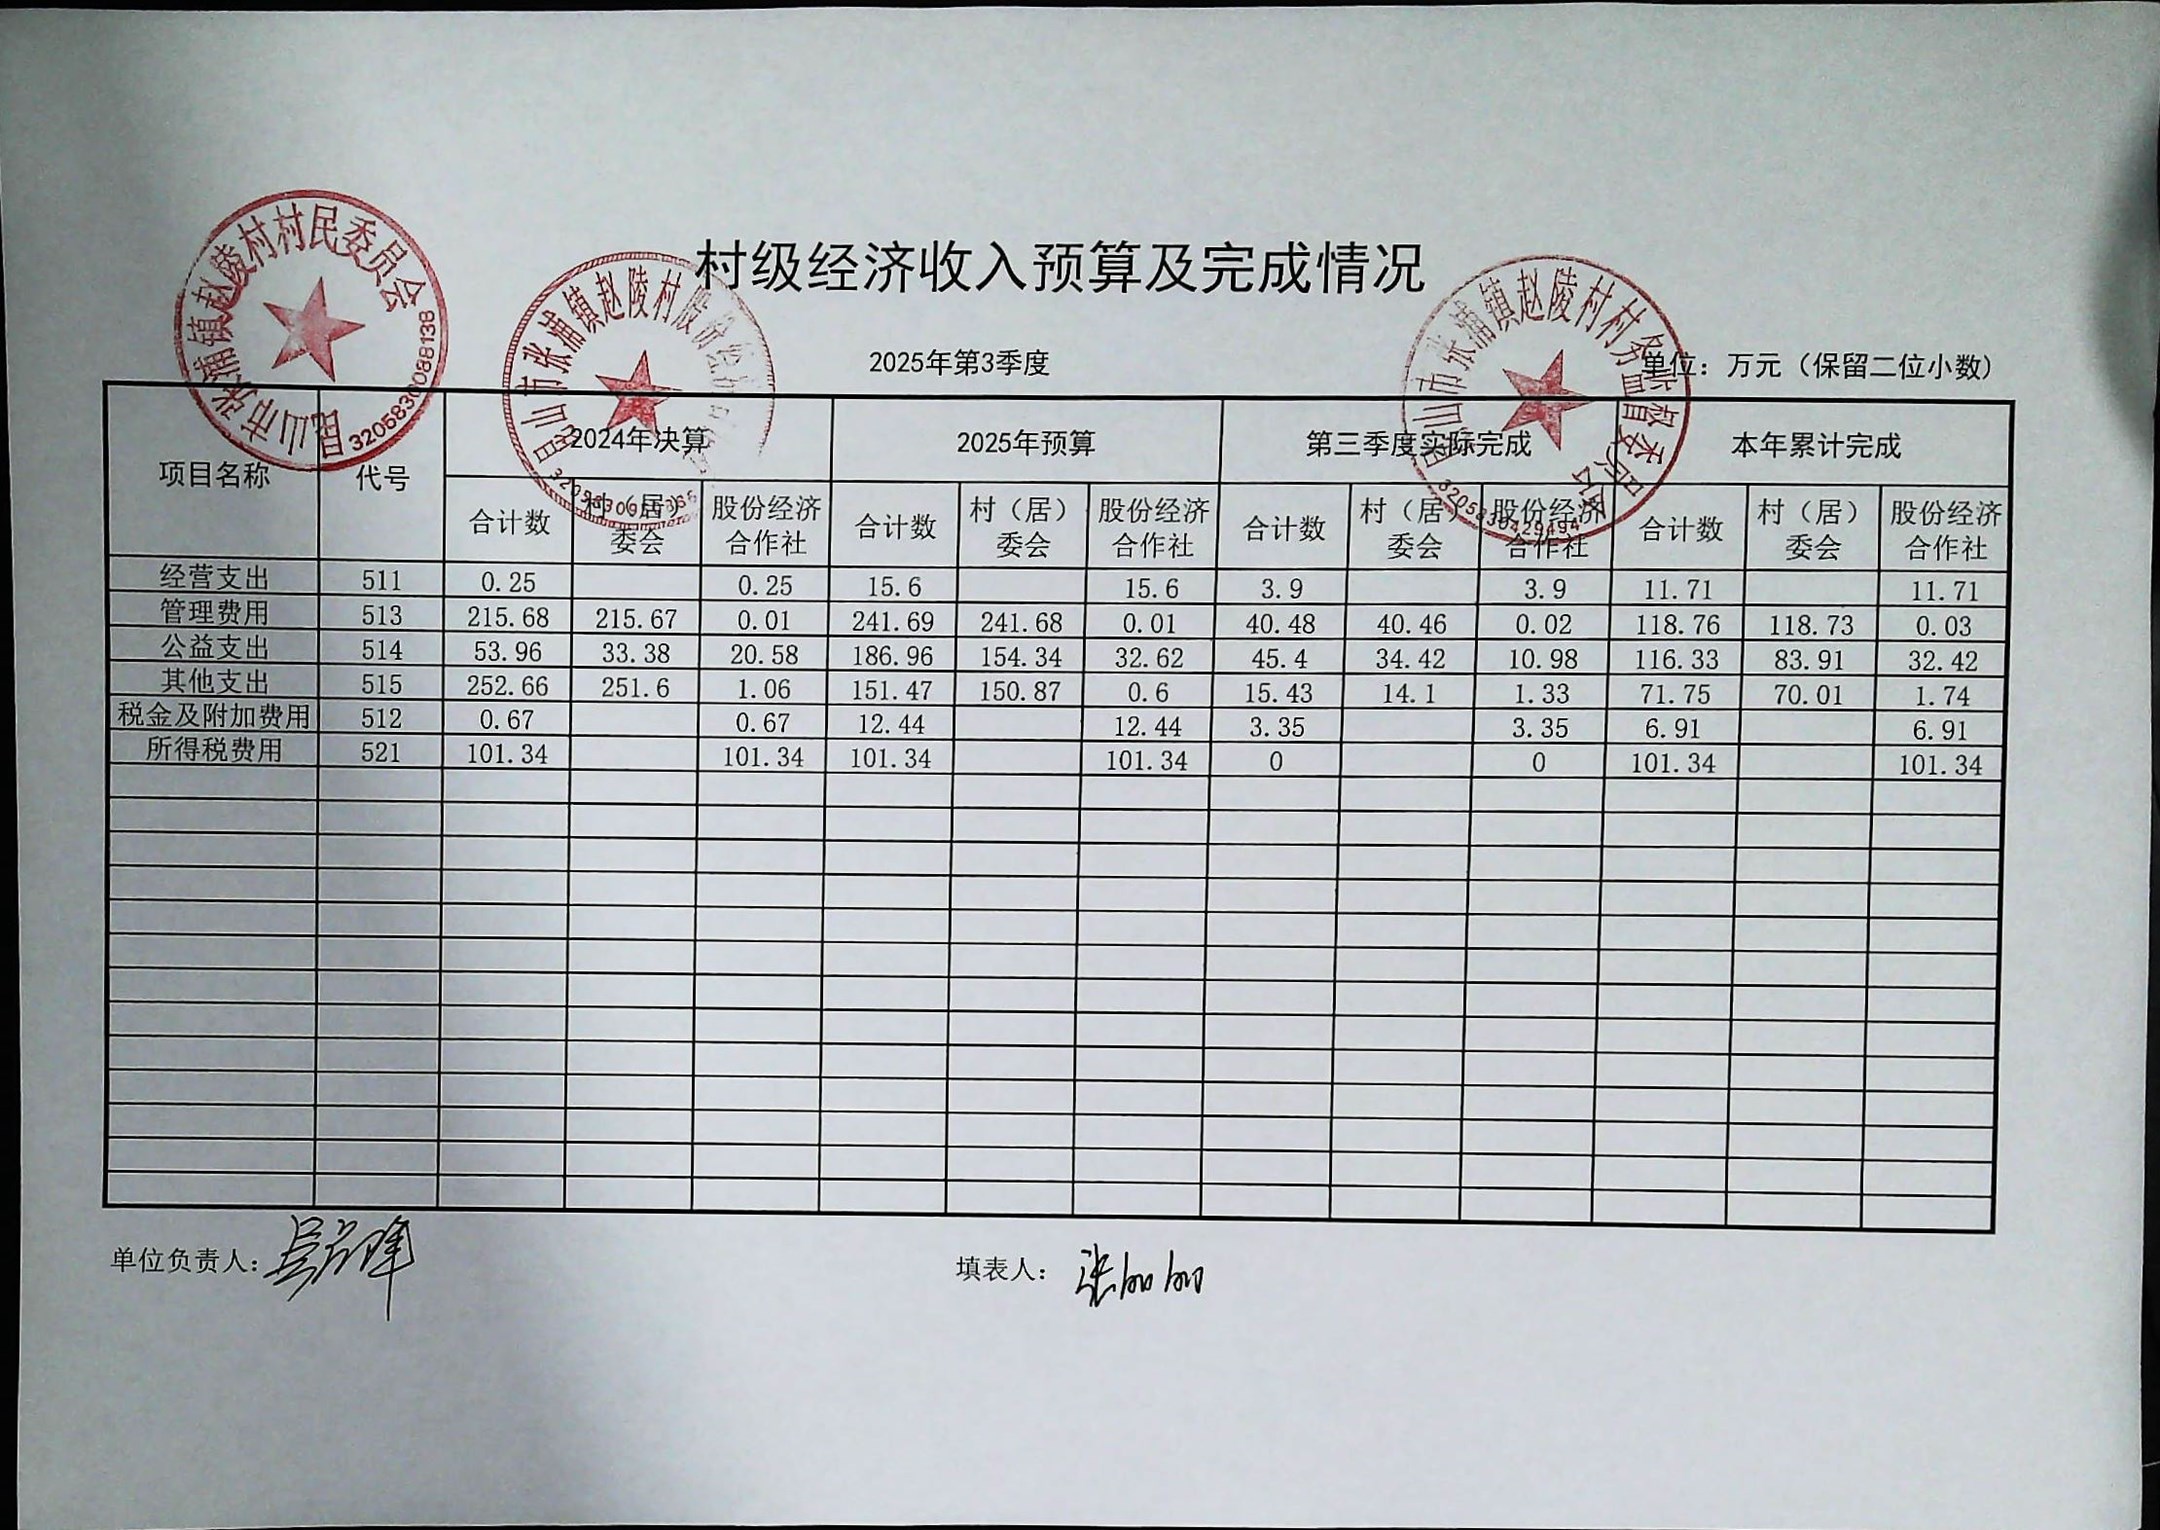 村级经济收入预算及完成情况
2025年第3季度
单位：万元（保留二位小数）
昆山市张浦镇赵陵村村民委员会
3205830088138
昆山市张浦镇赵陵村股份经
昆山市张浦镇赵陵村村务监督委员会
项目名称 代号 2024年决算 2025年预算 第三季度实际完成 本年累计完成
合计数 村（居）委会 股份经济合作社 合计数 村（居）委会 股份经济合作社 合计数 村（居）委会 股份经济合作社 合计数 村（居）委会 股份经济合作社
经营支出 511 0.25 0.25 15.6 15.6 3.9 3.9 11.71 11.71
管理费用 513 215.68 215.67 0.01 241.69 241.68 0.01 40.48 40.46 0.02 118.76 118.73 0.03
公益支出 514 53.96 33.38 20.58 186.96 154.34 32.62 45.4 34.42 10.98 116.33 83.91 32.42
其他支出 515 252.66 251.6 1.06 151.47 150.87 0.6 15.43 14.1 1.33 71.75 70.01 1.74
税金及附加费用 512 0.67 0.67 12.44 12.44 3.35 3.35 6.91 6.91
所得税费用 521 101.34 101.34 101.34 101.34 0 0 101.34 101.34
单位负责人：
填表人： 张如如